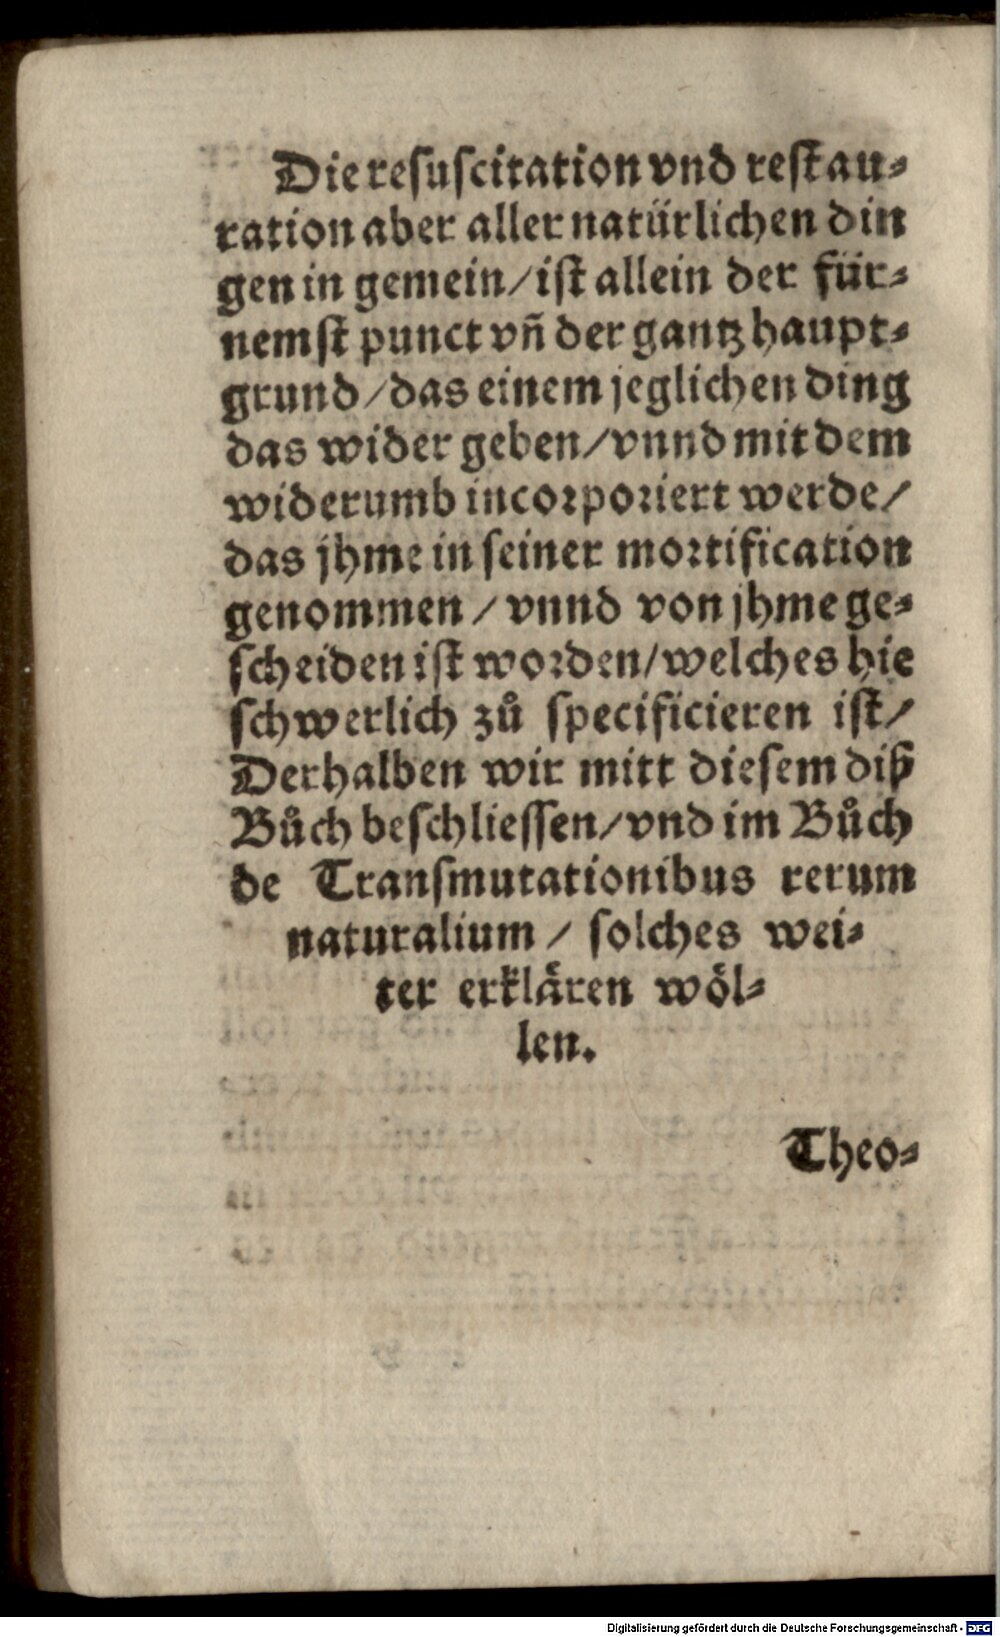 Die resuscitation vnd restau-
ration aber aller natürlichen din
gen in gemein/ist allein der für-
nemst punct vñ der gantz haupt-
grund/das einem jeglichen ding
das wider geben/vnnd mit dem
widerumb incorporiert werde/
das jhme in seiner mortification
genommen/vnnd von jhme ge-
scheiden ist worden/welches hie
schwerlich zů specificieren ist/
Derhalben wir mitt diesem diß
Bůch beschliessen/vnd im Bůch
de Transmutationibus rerum
naturalium/solches wei-
ter erklären wöl-
len.
Theo-
Digitalisierung gefördert durch die Deutsche Forschungsgemeinschaft - DFG